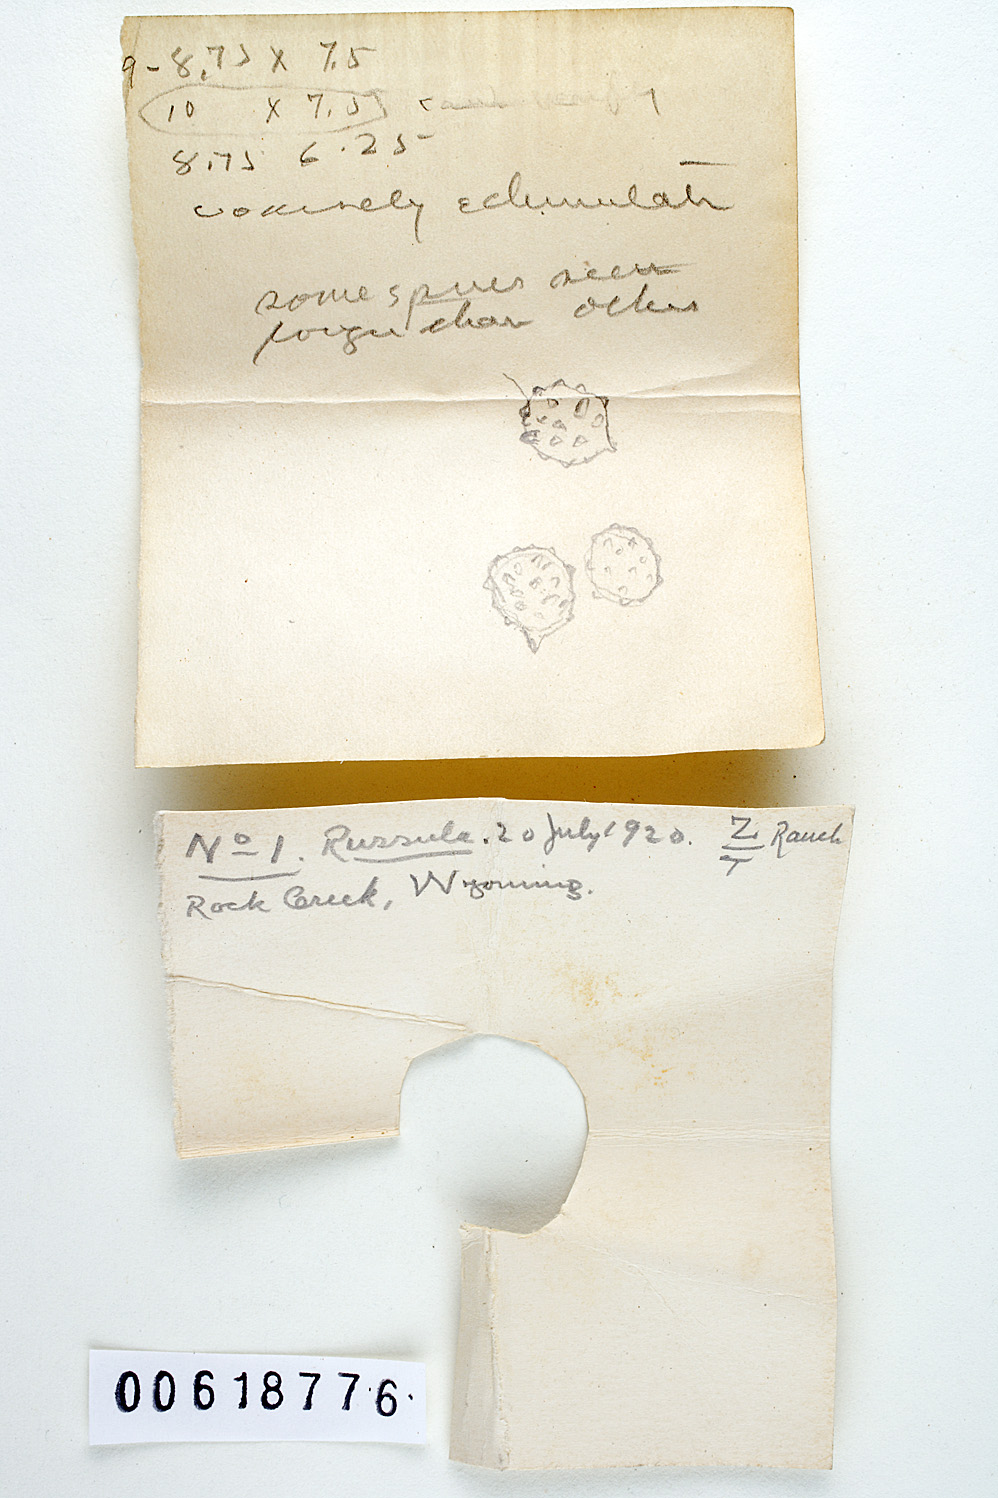 9-8.75 x 7.5
10 x 7.5
8.75 6.25
coarsely echinulate
some spines seen
longer than others
No 1. Russula. 20 July 1920. Z/T Ranch
Rock Creek, Wyoming.
00618776